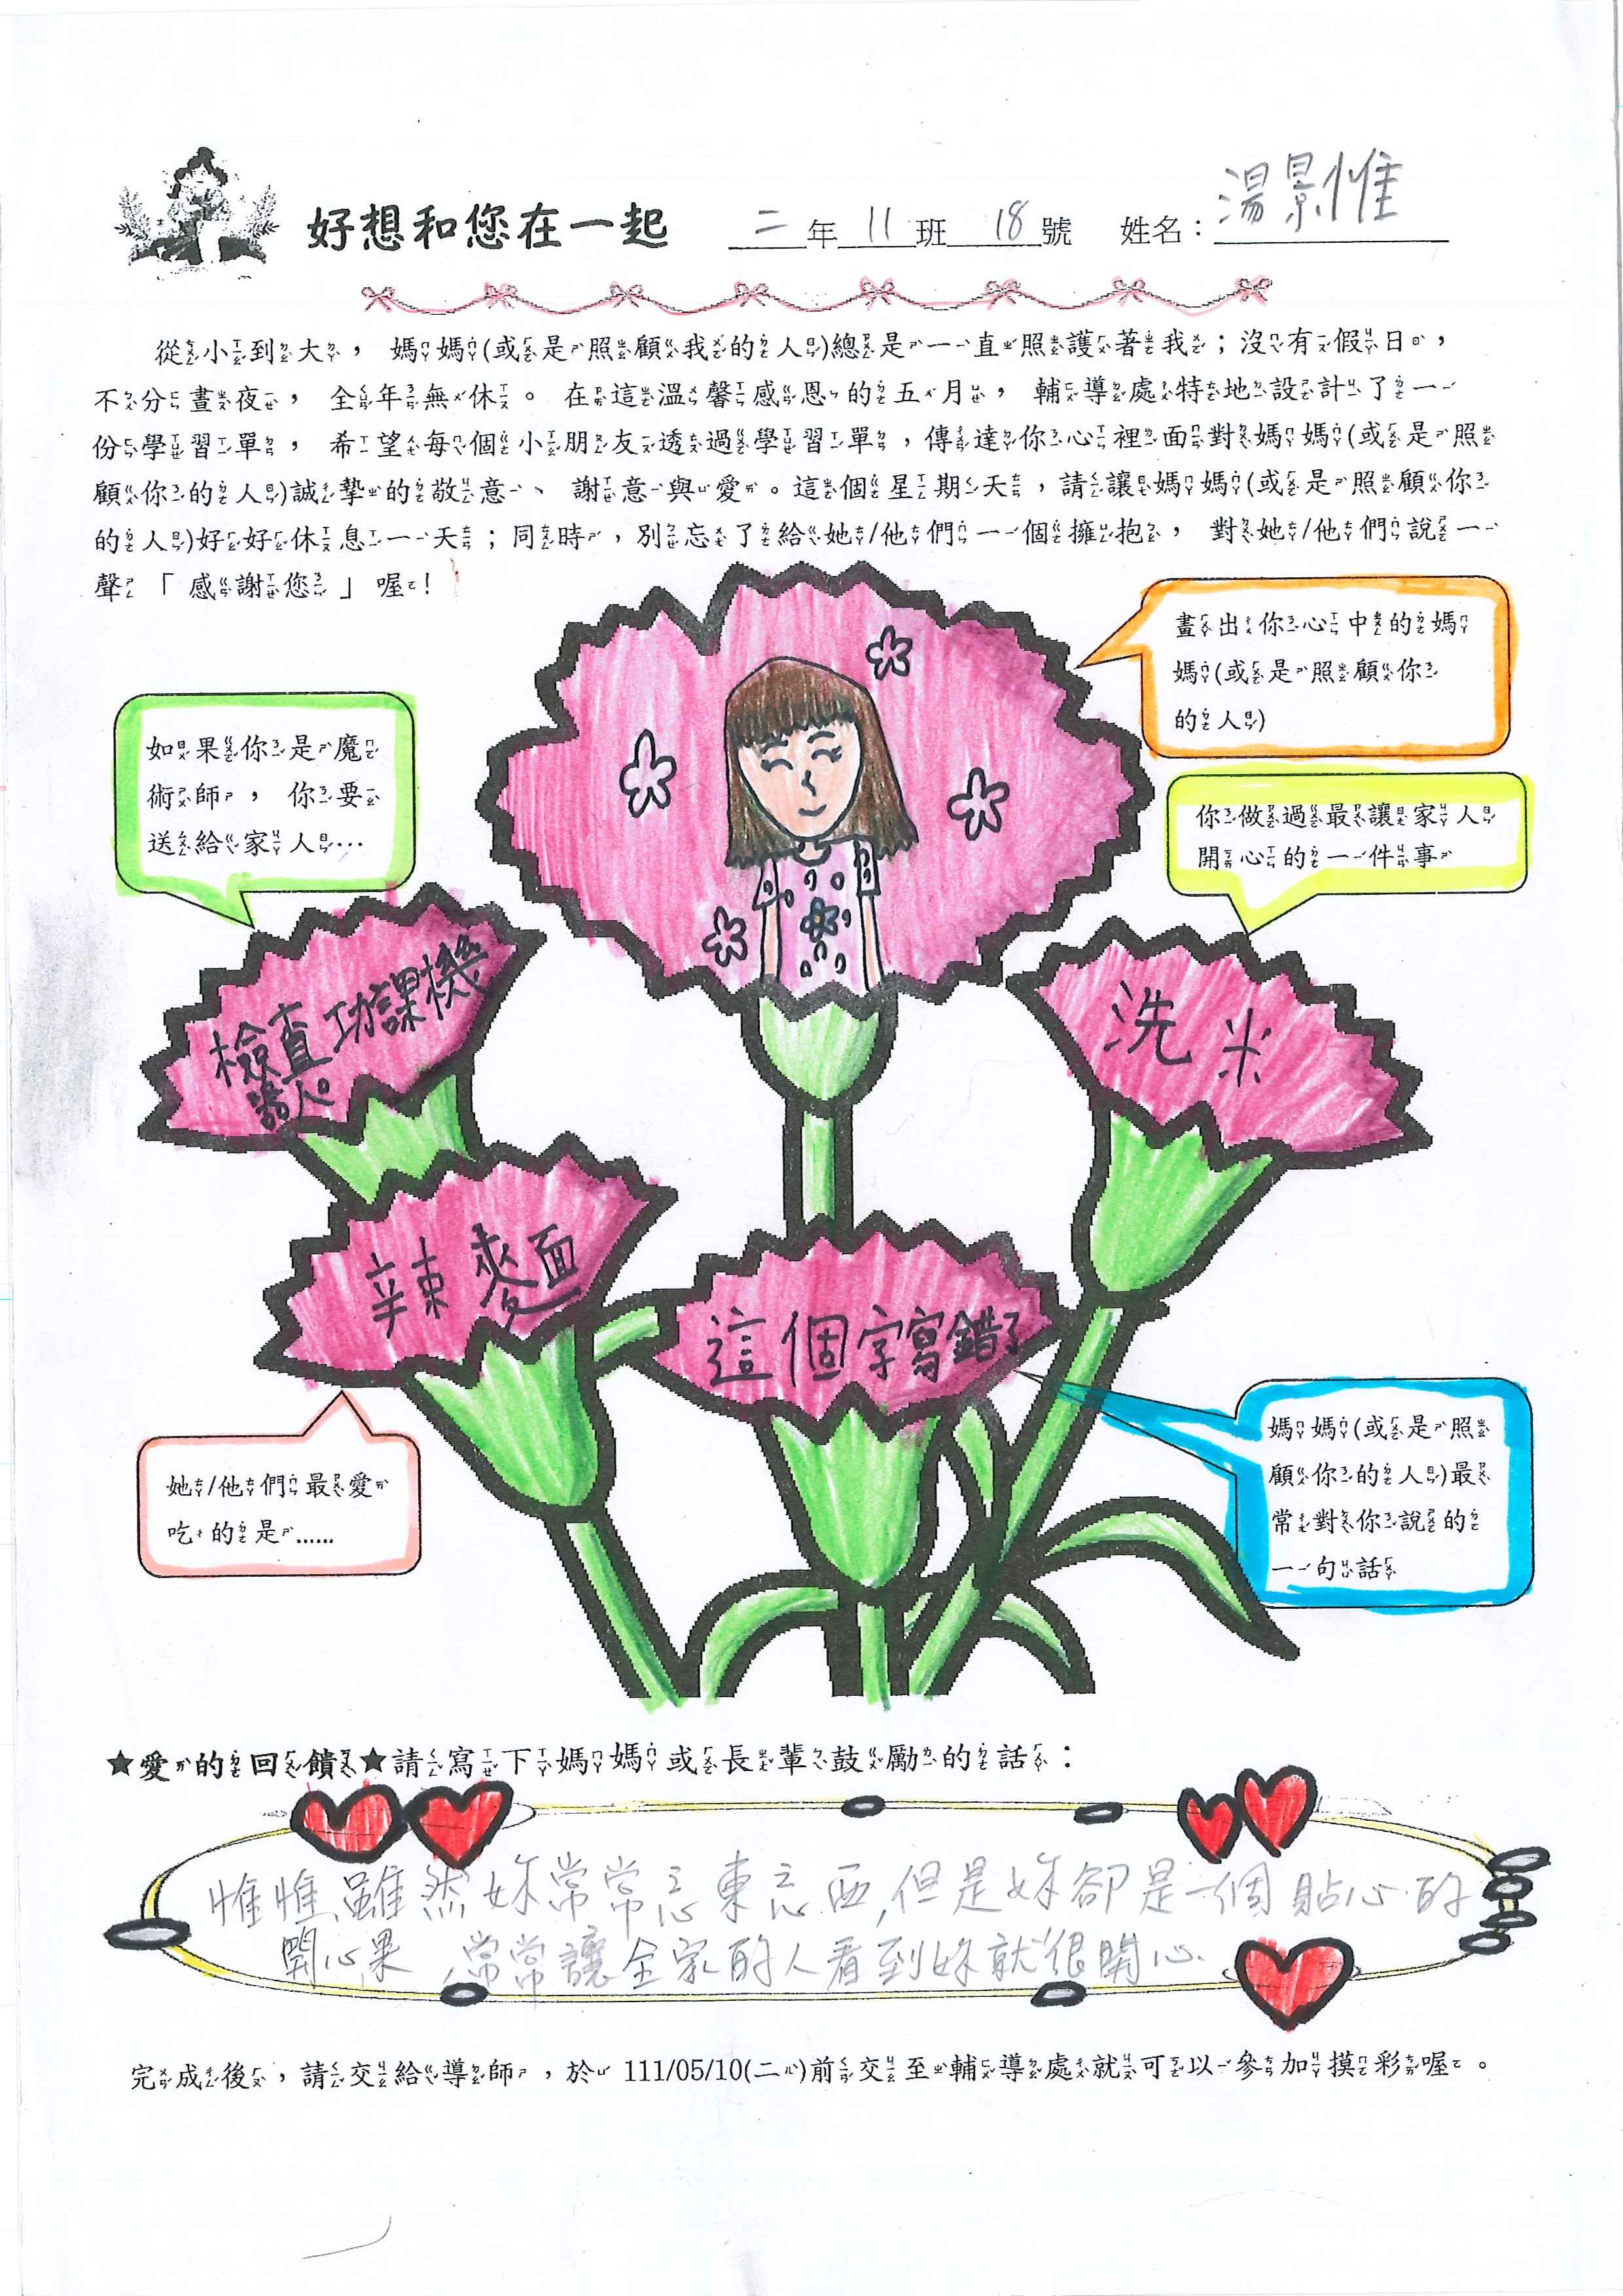 好想和您在一起 二年11班18號 姓名：湯景惟
從小到大，媽媽(或是照顧我的人)總是一直照護著我；沒有假日，
不分晝夜，全年無休。在這溫馨感恩的五月，輔導處特地設計了一
份學習單，希望每個小朋友透過學習單，傳達你心裡面對媽媽(或是照
顧你的人)誠摯的敬意、謝意與愛。這個星期天，請讓媽媽(或是照顧你
的人)好好休息一天；同時，別忘了給她/他們一個擁抱，對她/他們說一
聲「感謝您」喔！
畫出你心中的媽
媽(或是照顧你
的人)
如果你是魔
術師，你要
送給家人…
你做過最讓家人
開心的一件事
檢查功課機
器人。
洗米
辣麵
這個字寫錯了
她/他們最愛
吃的是……
媽媽(或是照
顧你的人)最
常對你說的
一句話
★愛的回饋★請寫下媽媽或長輩鼓勵的話：
惟惟雖然妳常常忘東忘西,但是妳卻是一個貼心的
開心果,常常讓全家的人看到妳就很開心.
完成後，請交給導師，於 111/05/10(二)前交至輔導處就可以參加摸彩喔。